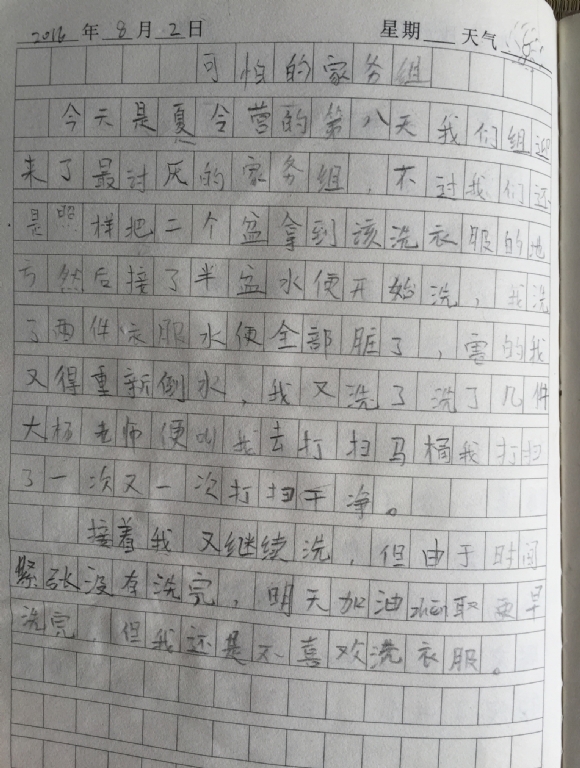 2016年8月2日 星期 天气
可怕的家务组
今天是夏令营的第八天我们组迎
来了最讨厌的家务组，不过我们还
是照样把二个盆拿到该洗衣服的地
方然后接了半盆水便开始洗，我洗
了两件衣服水便全部脏了，害的我
又得重新倒水，我又洗了洗了几件
大杨老师便叫我去打扫马桶我打扫
了一次又一次打扫干净。
接着我又继续洗，但由于时间
紧张没有洗完，明天加油 取 早
洗完，但我还是不喜欢洗衣服。